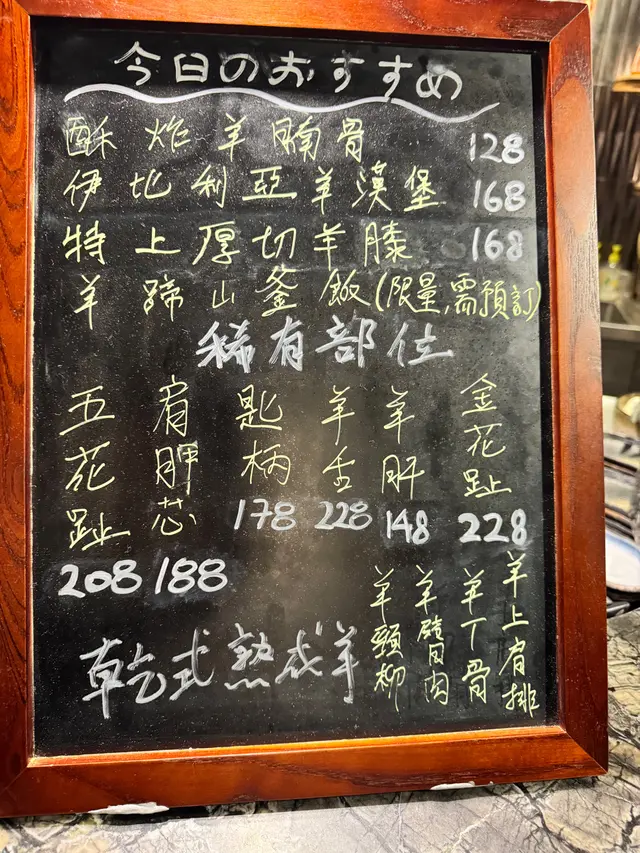 今日のおすすめ
酥炸羊腩骨 128
伊比利亞羊漢堡 168
特上厚切羊膝 168
羊蹄山釜飯(限量,需預訂)
稀有部位
五花趾 208
肩胛芯 188
匙柄 178
羊舌 228
羊肝 148
金花趾 228
乾式熟成羊
羊頸柳
羊臂肉
羊丁骨
羊上肩排